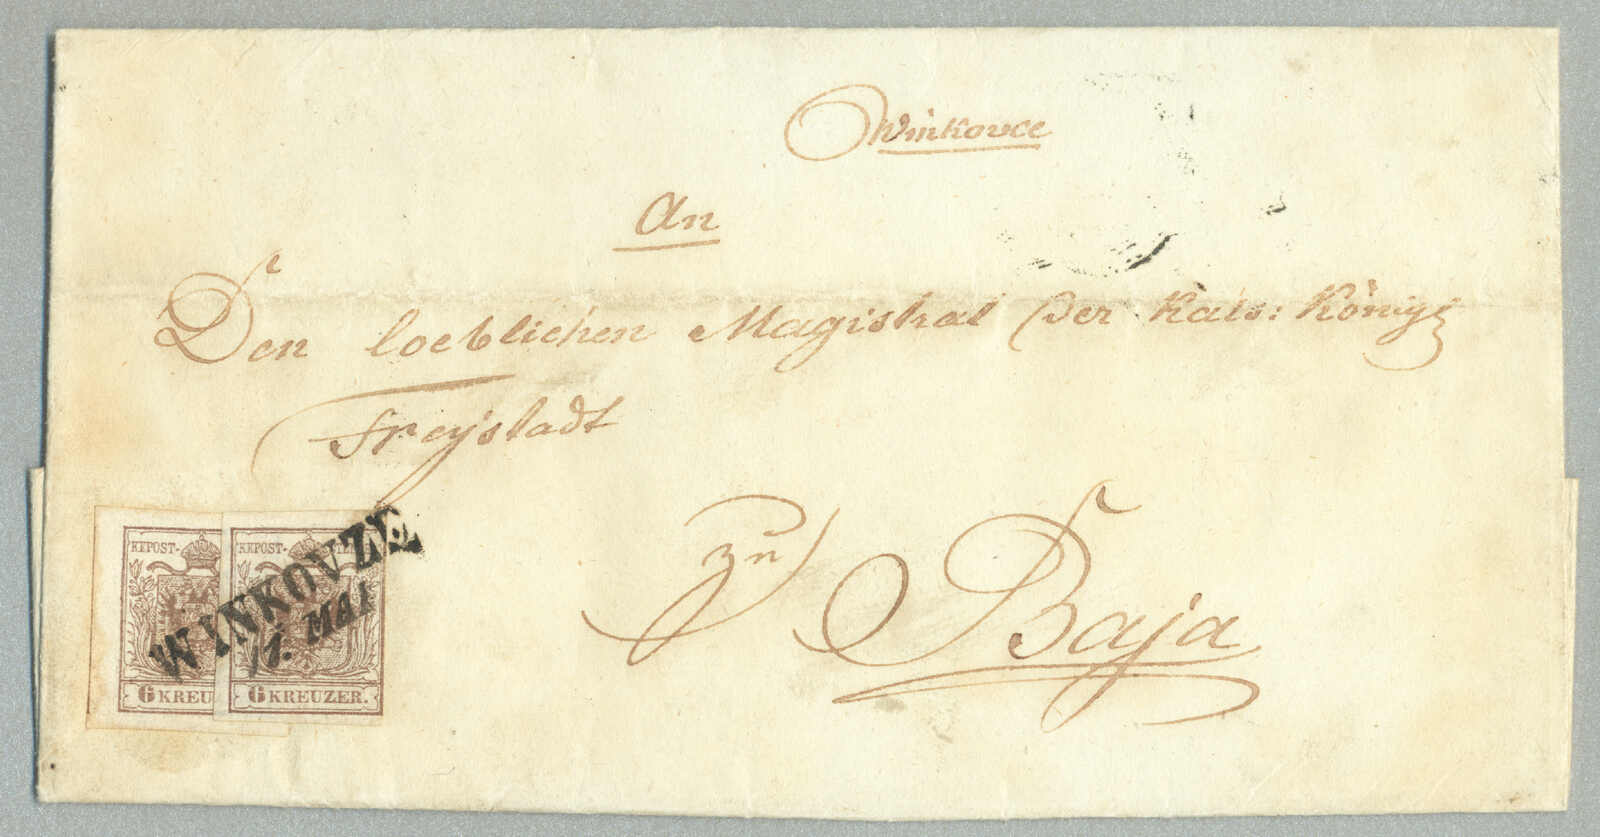 Winkovce
An
Den loeblichen Magistrat der Kais: Königl
Freystadt
zu Baja
KKPOST-
KKPOST-
WINKOVZE
11. MAI
6 KREU
6 KREUZER.